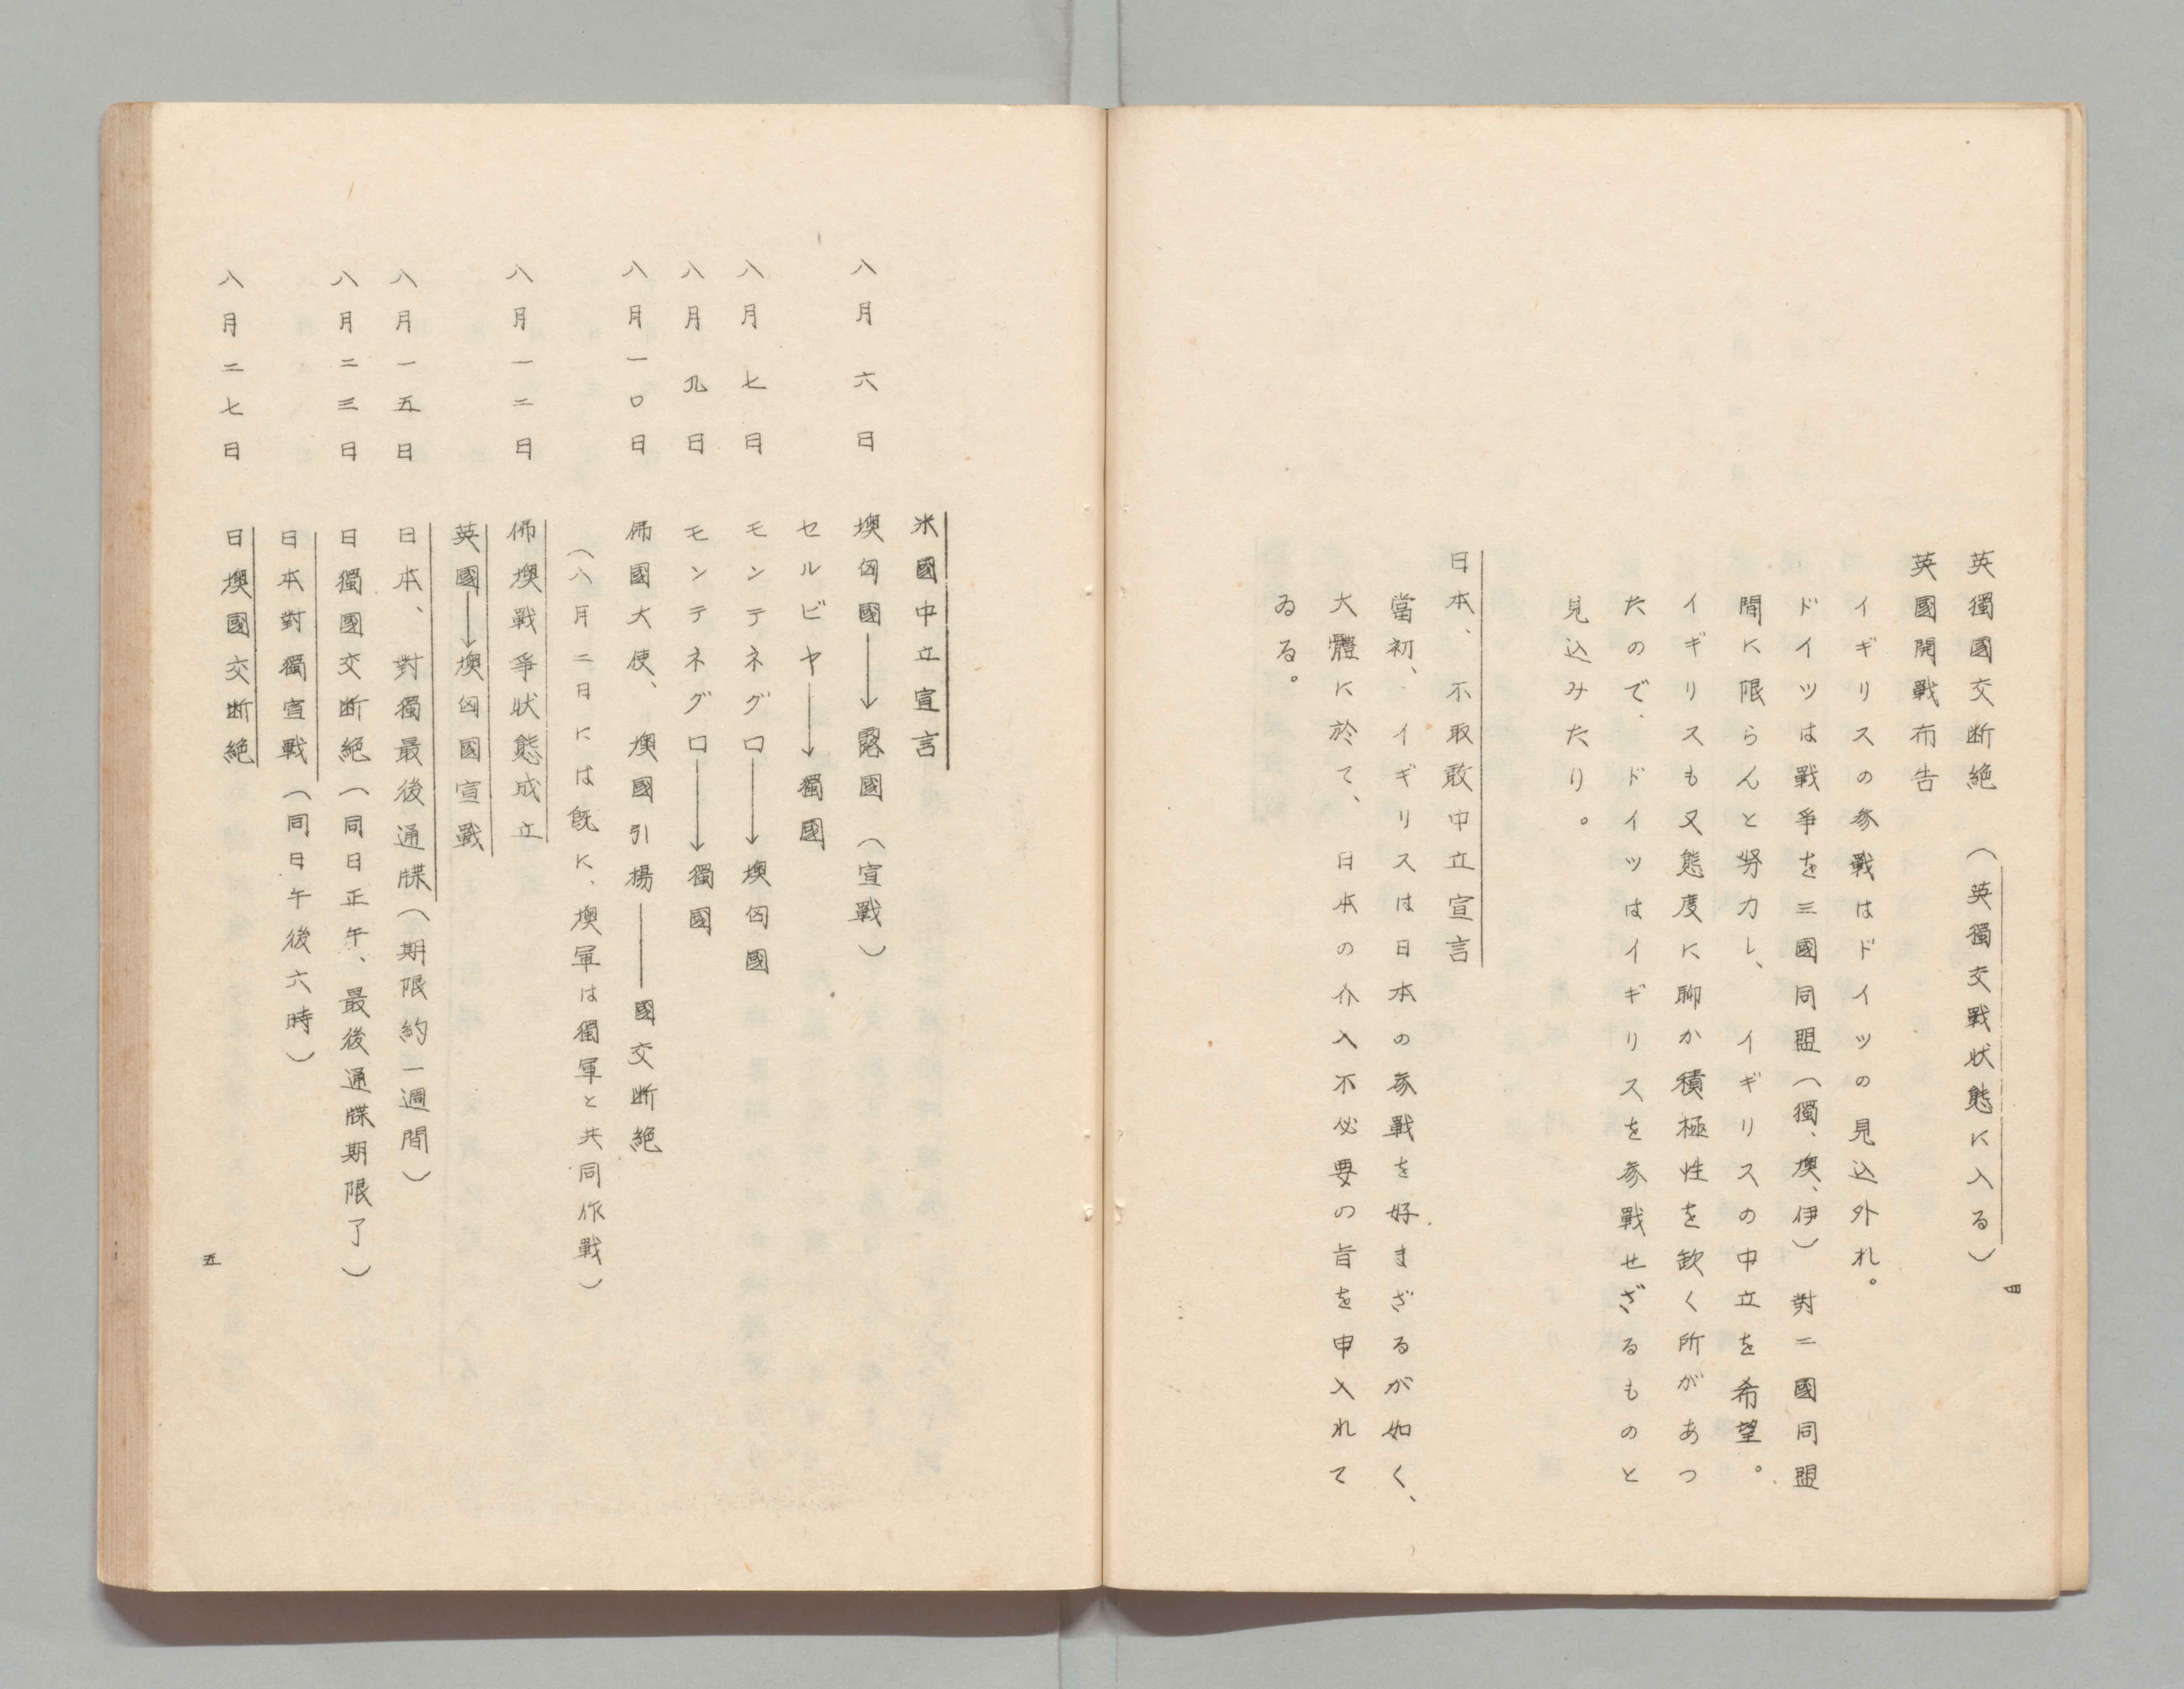 英獨國交断絶　（英獨交戰状態に入る）
英國開戰布告
イギリスの参戰はドイツの見込外れ。
ドイツは戰爭を三國同盟（獨、墺、伊）對二國同盟
間に限らんと努力し、イギリスの中立を希望。
イギリスも又態度に聊か積極性を欽く所があつ
たので、ドイツはイギリスを参戰せざるものと
見込みたり。
日本、不取敢中立宣言
當初、イギリスは日本の参戰を好まざるが如く、
大體に於て、日本の介入不必要の旨を申入れて
ゐる。
四
米國中立宣言
八月六日　墺匈國──→露國（宣戰）
セルビヤ──→獨國
八月七日　モンテネグロ──→墺匈國
八月九日　モンテネグロ──→獨國
八月一〇日　佛國大使、墺國引揚──國交断絶
（八月二日には既に、墺軍は獨軍と共同作戰）
八月一二日　佛墺戰爭状態成立
英國──→墺匈國宣戰
八月一五日　日本、對獨最後通牒（期限約一週間）
八月二三日　日獨國交断絶（同日正午、最後通牒期限了）
日本對獨宣戰（同日午後六時）
八月二七日　日墺國交断絶
五